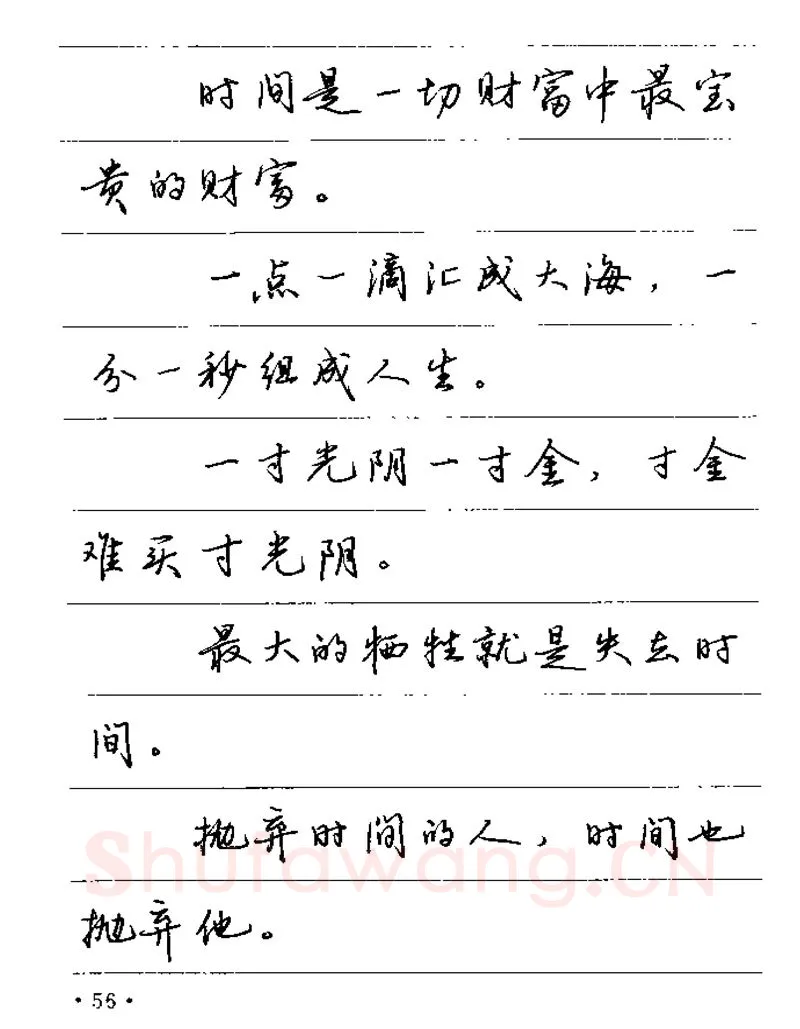 时间是一切财富中最宝
贵的财富。
一点一滴汇成大海，一
分一秒组成人生。
一寸光阴一寸金，寸金
难买寸光阴。
最大的牺牲就是失去时
间。
抛弃时间的人，时间也
抛弃他。
Shufawang.CN
·56·